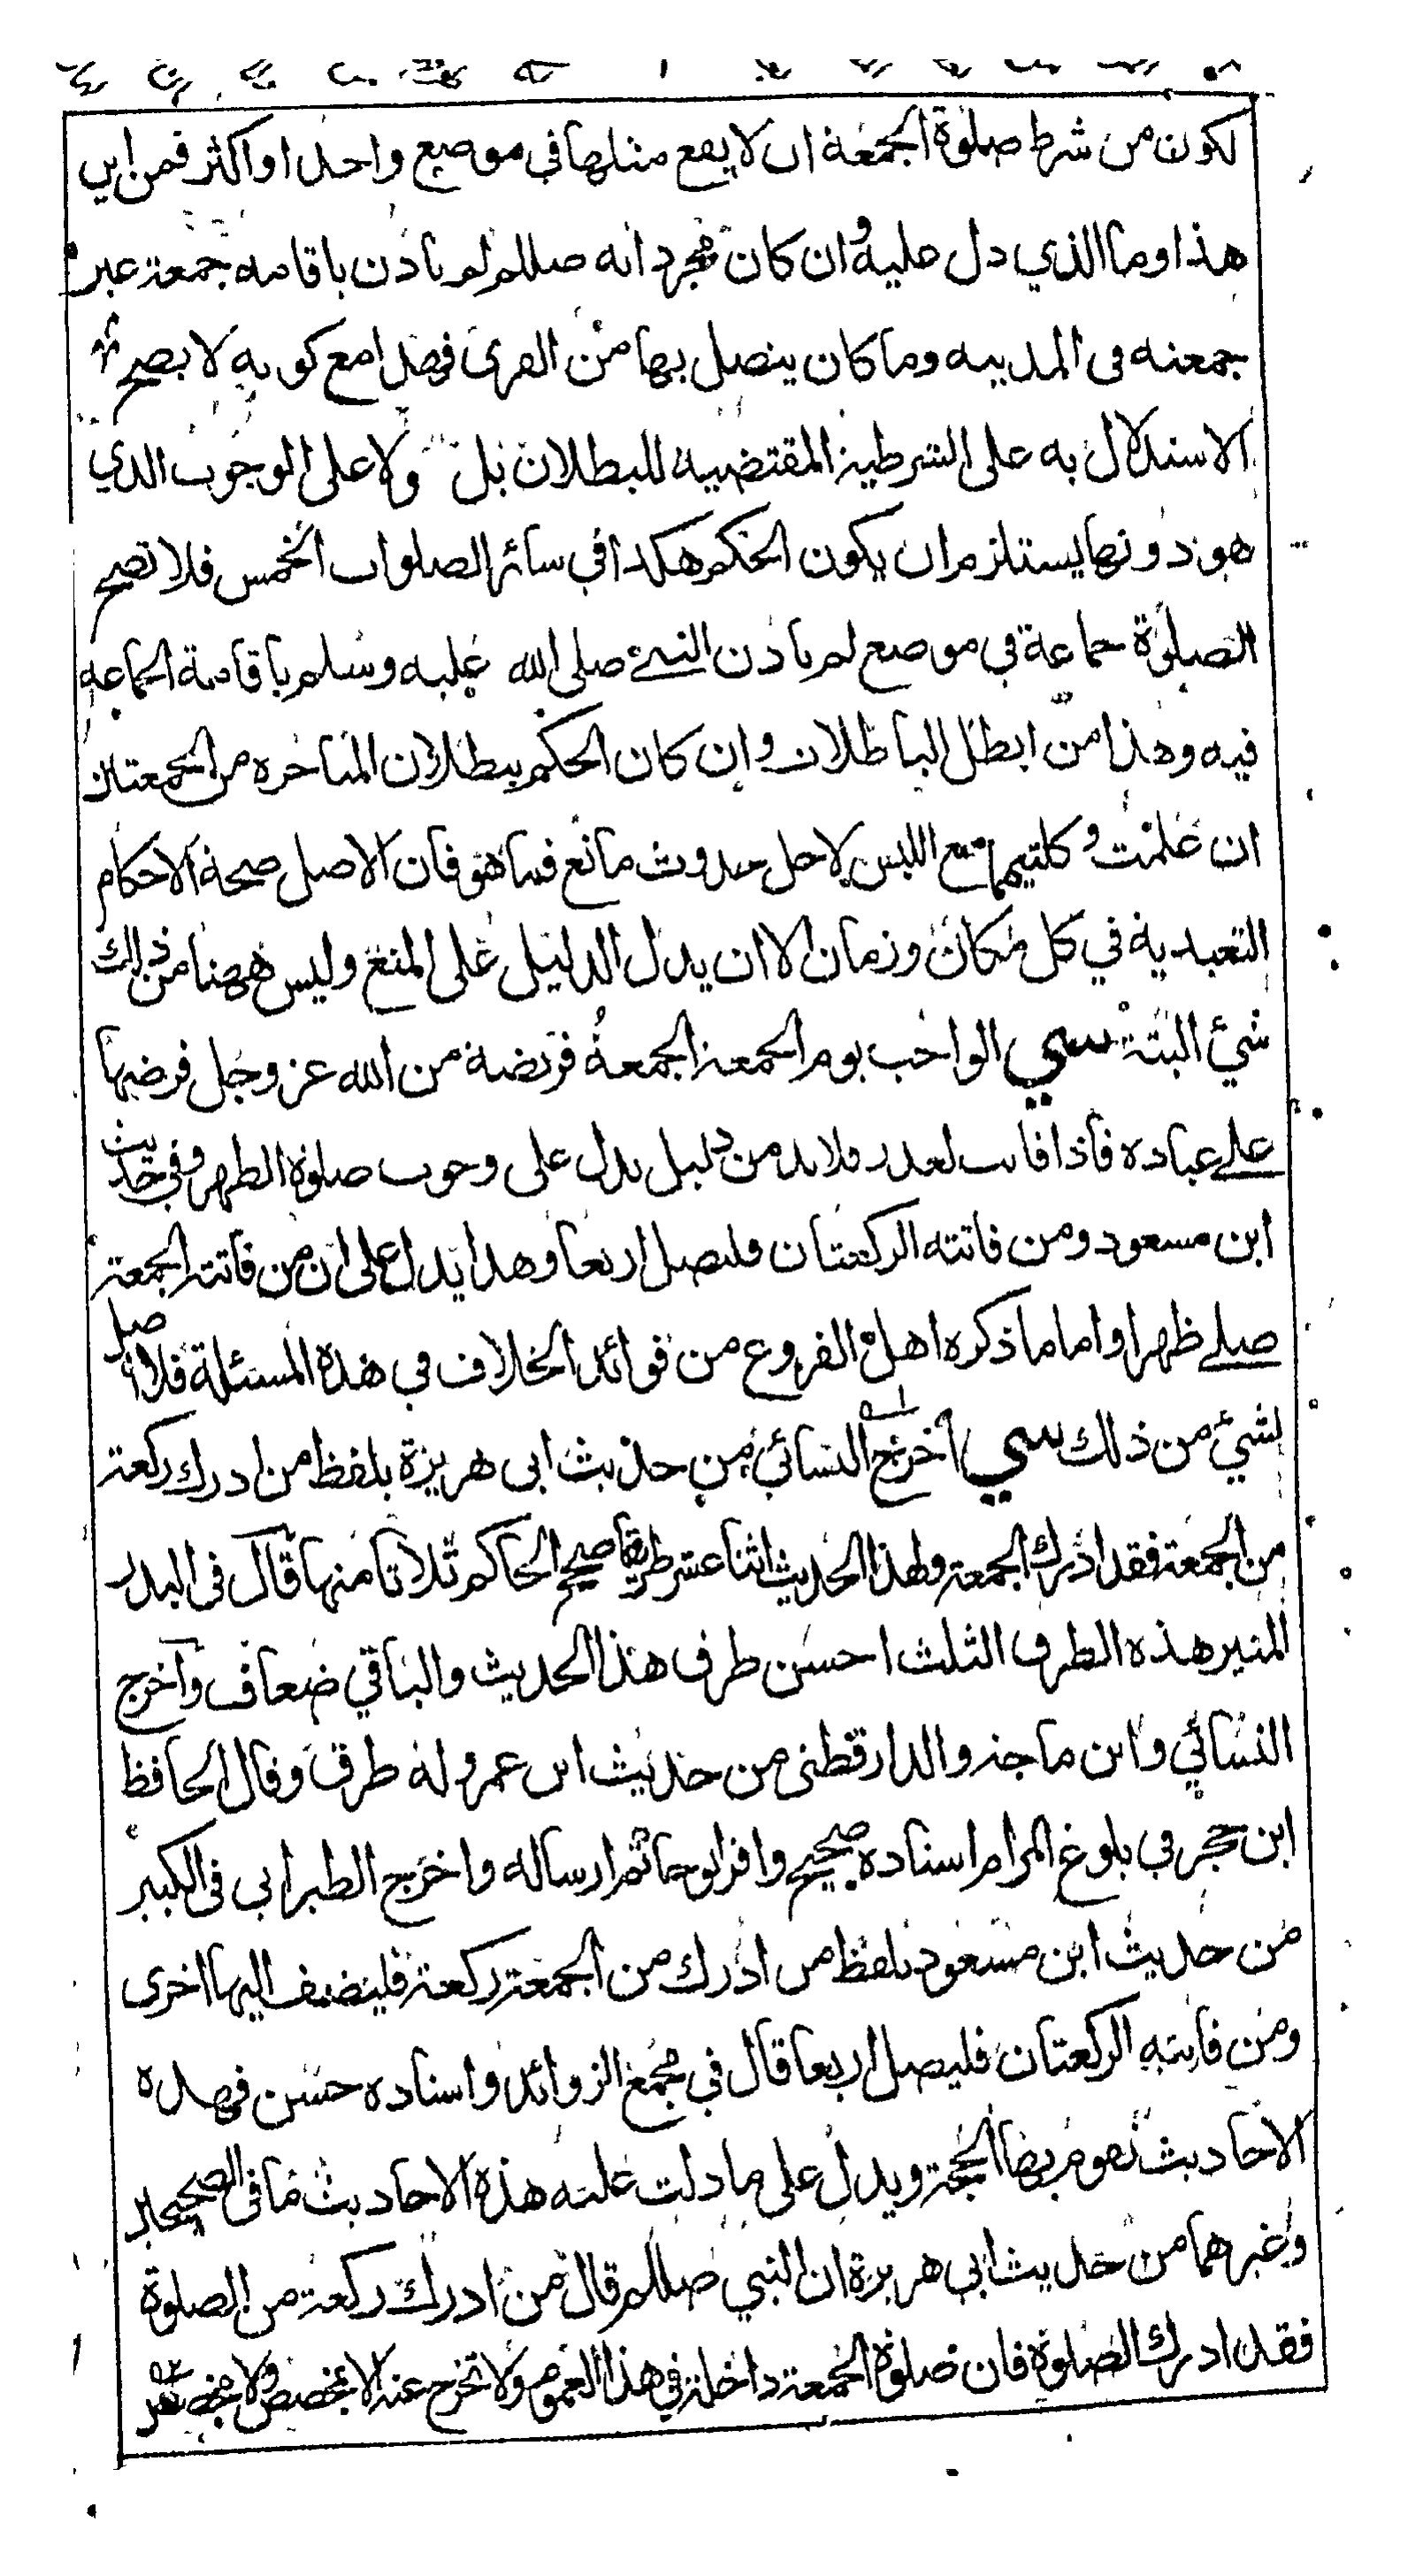 لكون من شرط صلوة الجمعة ان لا يقع مثلها في موضع واحد او اكثر فمن اين
هذا وما الذي دل عليه وان كان مجرد انه صللم لم ياذن باقامه جمعة غير
جمعته في المدينه وما كان يتصل بها من القرى فهذا مع كونه لا يصح
الاستدلال به على الشرطية المقتضيه للبطلان بل ولا على الوجوب الذي
هو دونها يستلزم ان يكون الحكم هكذا في سائر الصلوات الخمس فلا تصح
الصلوة جماعة في موضع لم ياذن النبي صلى الله عليه وسلم باقامة الجماعه
فيه وهذا من ابطل الباطلات وان كان الحكم ببطلان المتاخره من الجمعتين
ان علمت وكلتيهما مع اللبس لاجل حدوث مانع فما هو فان الاصل صحة الاحكام
التعبدية في كل مكان وزمان الا ان يدل الدليل على المنع وليس ههنا من ذلك
شيء البتة الواجب يوم الجمعة الجمعة فريضة من الله عز وجل فرضها
على عباده فاذا فاتت لعذر فلا بد من دليل يدل على وجوب صلوة الظهر وفي حديث
ابن مسعود ومن فاتته الركعتان فليصل اربعا وهذا يدل على ان من فاتته الجمعة
صلى ظهرا واما ما ذكره اهل الفروع من فوائد الخلاف في هذه المسئلة فلا اصل
لشيء من ذلك اخرج النسائي من حديث ابي هريرة بلفظ من ادرك ركعة
من الجمعة فقد ادرك الجمعة ولهذا الحديث اثنا عشر طريقا صحح الحاكم ثلاثا منها قال في البدر
المنير هذه الطرق الثلث احسن طرق هذا الحديث والباقي ضعاف واخرج
النسائي وابن ماجة والدارقطني من حديث ابن عمر وله طرق وقال الحافظ
ابن حجر في بلوغ المرام اسناده صحيح وابو حاتم ارساله واخرج الطبراني في الكبير
من حديث ابن مسعود بلفظ من ادرك من الجمعة ركعة فليضف اليها اخرى
ومن فاتته الركعتان فليصل اربعا قال في مجمع الزوائد واسناده حسن فهذه
الاحاديث تقوم بها الحجة ويدل على ما دلت عليه هذه الاحاديث ما في الصحيحين
وغيرهما من حديث ابي هريرة ان النبي صللم قال من ادرك ركعة من الصلوة
فقد ادرك الصلوة فان صلوة الجمعة داخلة في هذا العموم ولا تخرج عنه الا بمخصص ولا مخصص